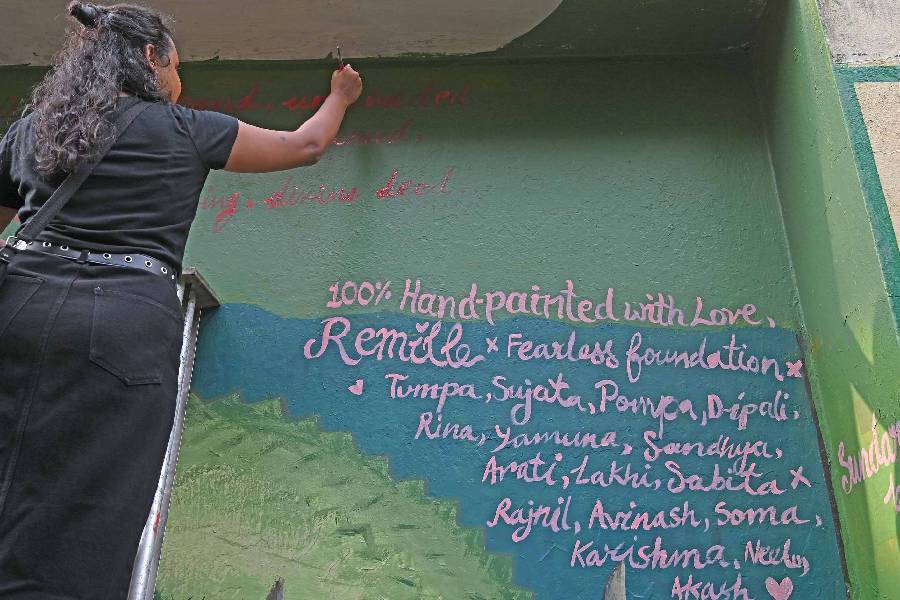 deed.
100% Hand-painted with Love,
Remille x Fearless foundation x
Tumpa, Sujata, Pompa, Dipali,
Rina, Yamuna, Sandhya,
Arati, Lakhi, Sabita x
Rajnil, Avinash, Soma,
Karishma, Neel,
Akash